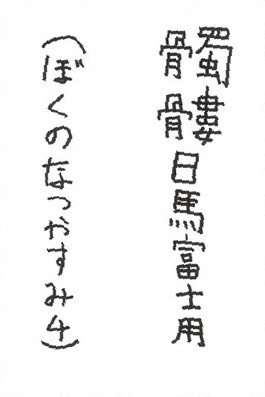 髑髏日馬富士用
(ぼくのなつやすみ4)